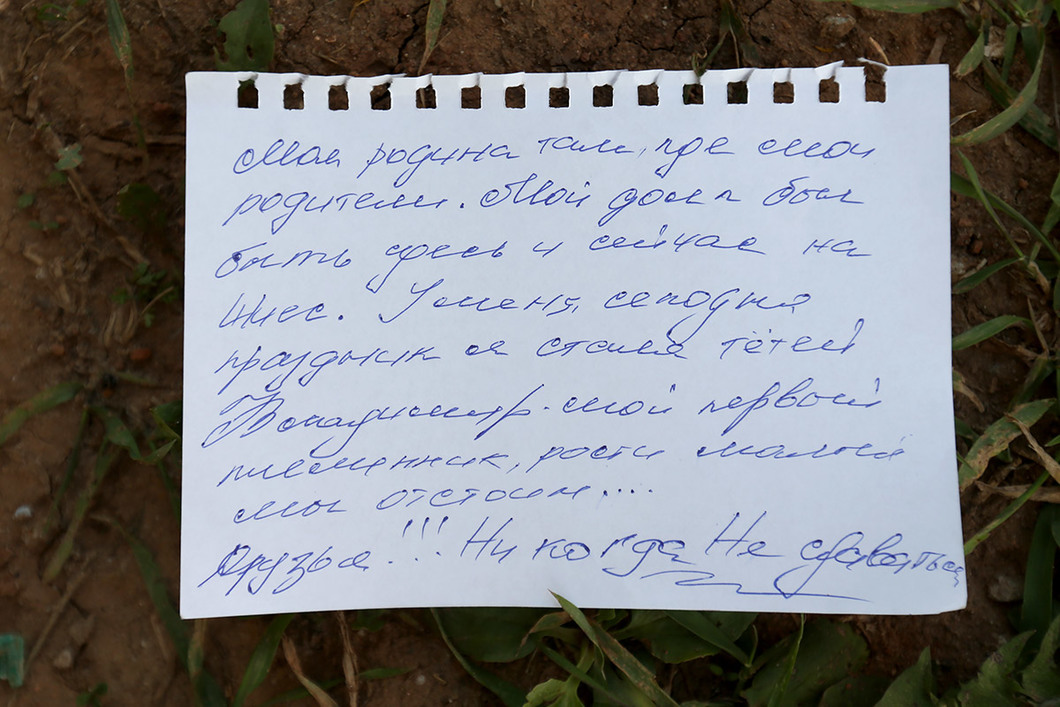 Моя родина там, где мои
родители. Мой долг был
быть здесь и сейчас на
У меня сегодня
праздник я стала тётей
Владимир - мой первый
племенник, рости малый
мы отстоим....
Друзья!!! Ни когда Не сдаваться